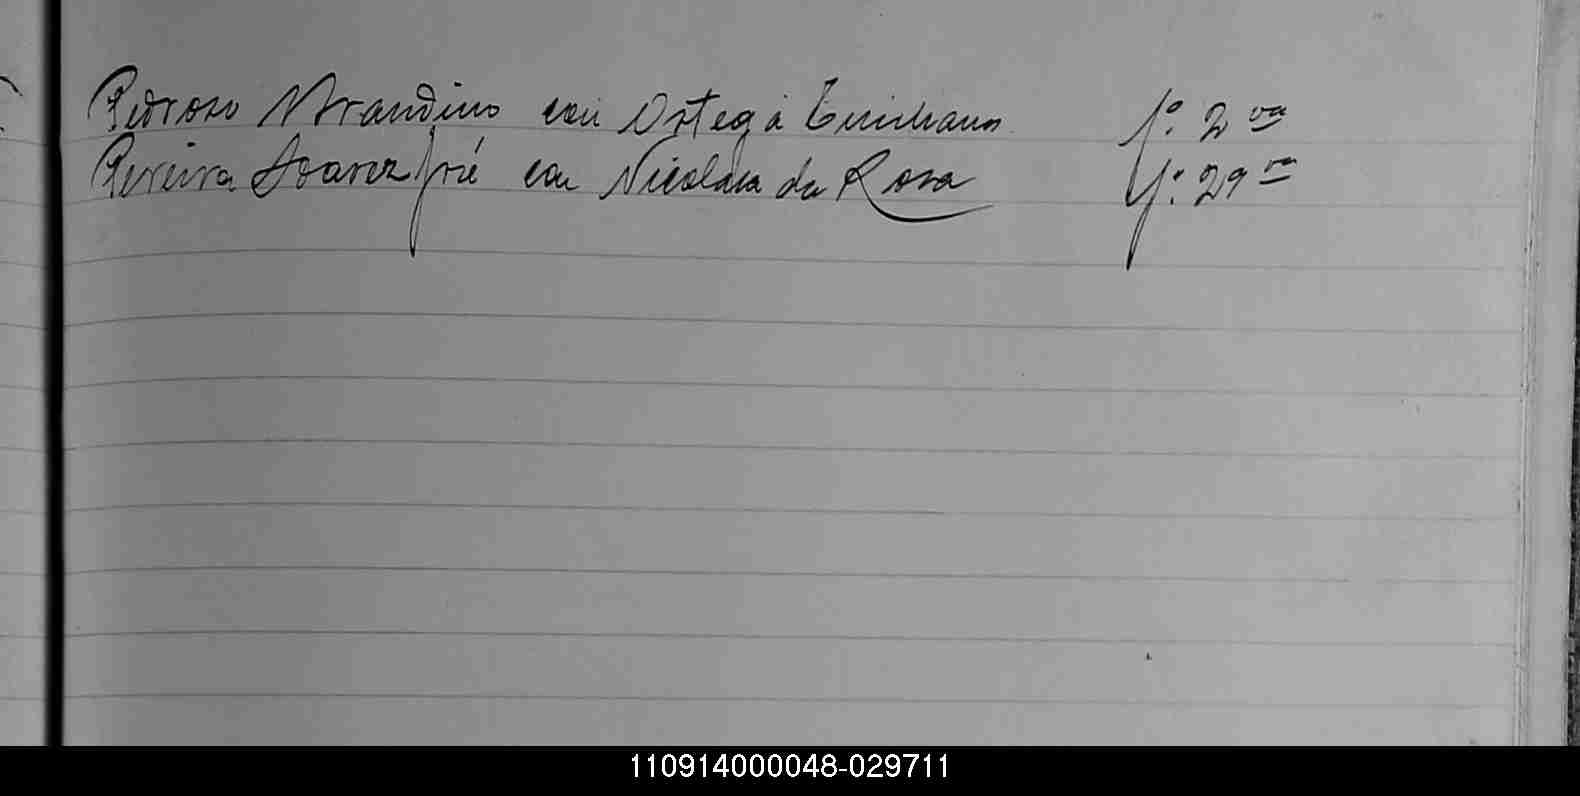 Pedroso Brandino con Ortega Emiliana fº. 2 va
Pereira Soarez José con Nicolasa da Rosa fº. 29 va
110914000048-029711